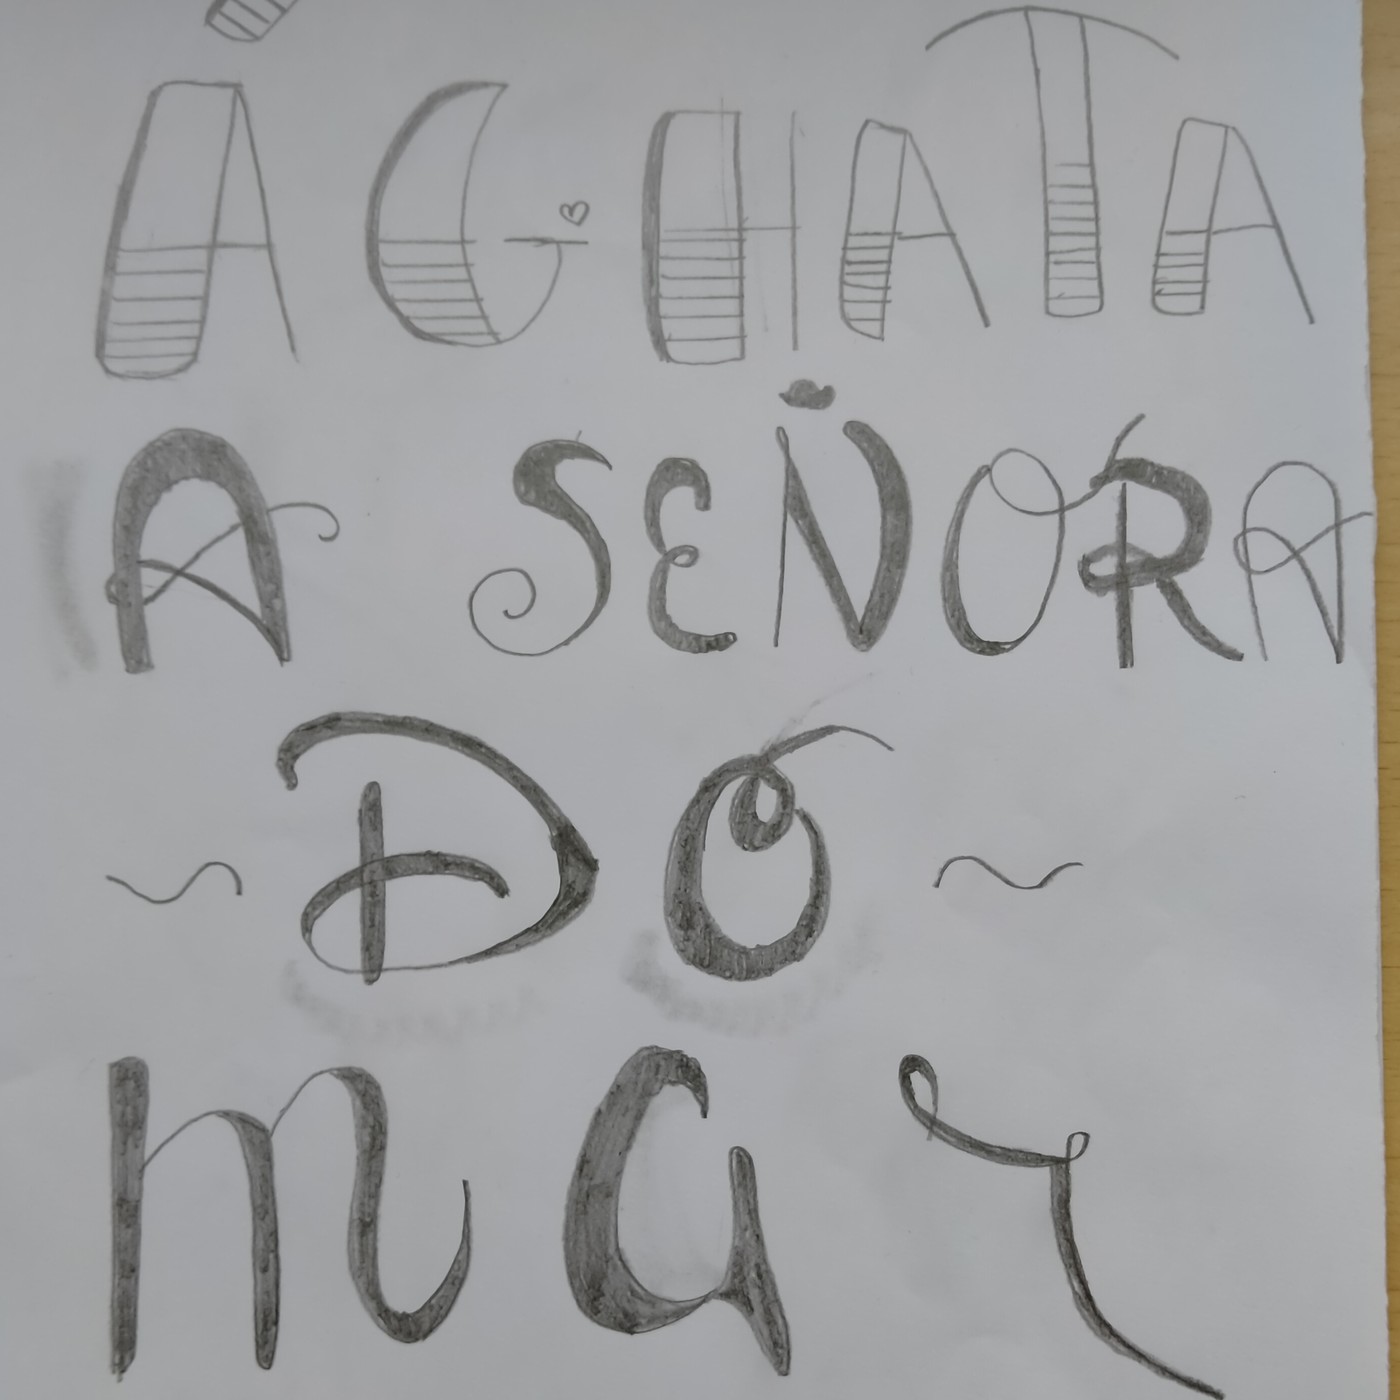 ÁGHATA
A SEÑORA
~ DO ~
mar